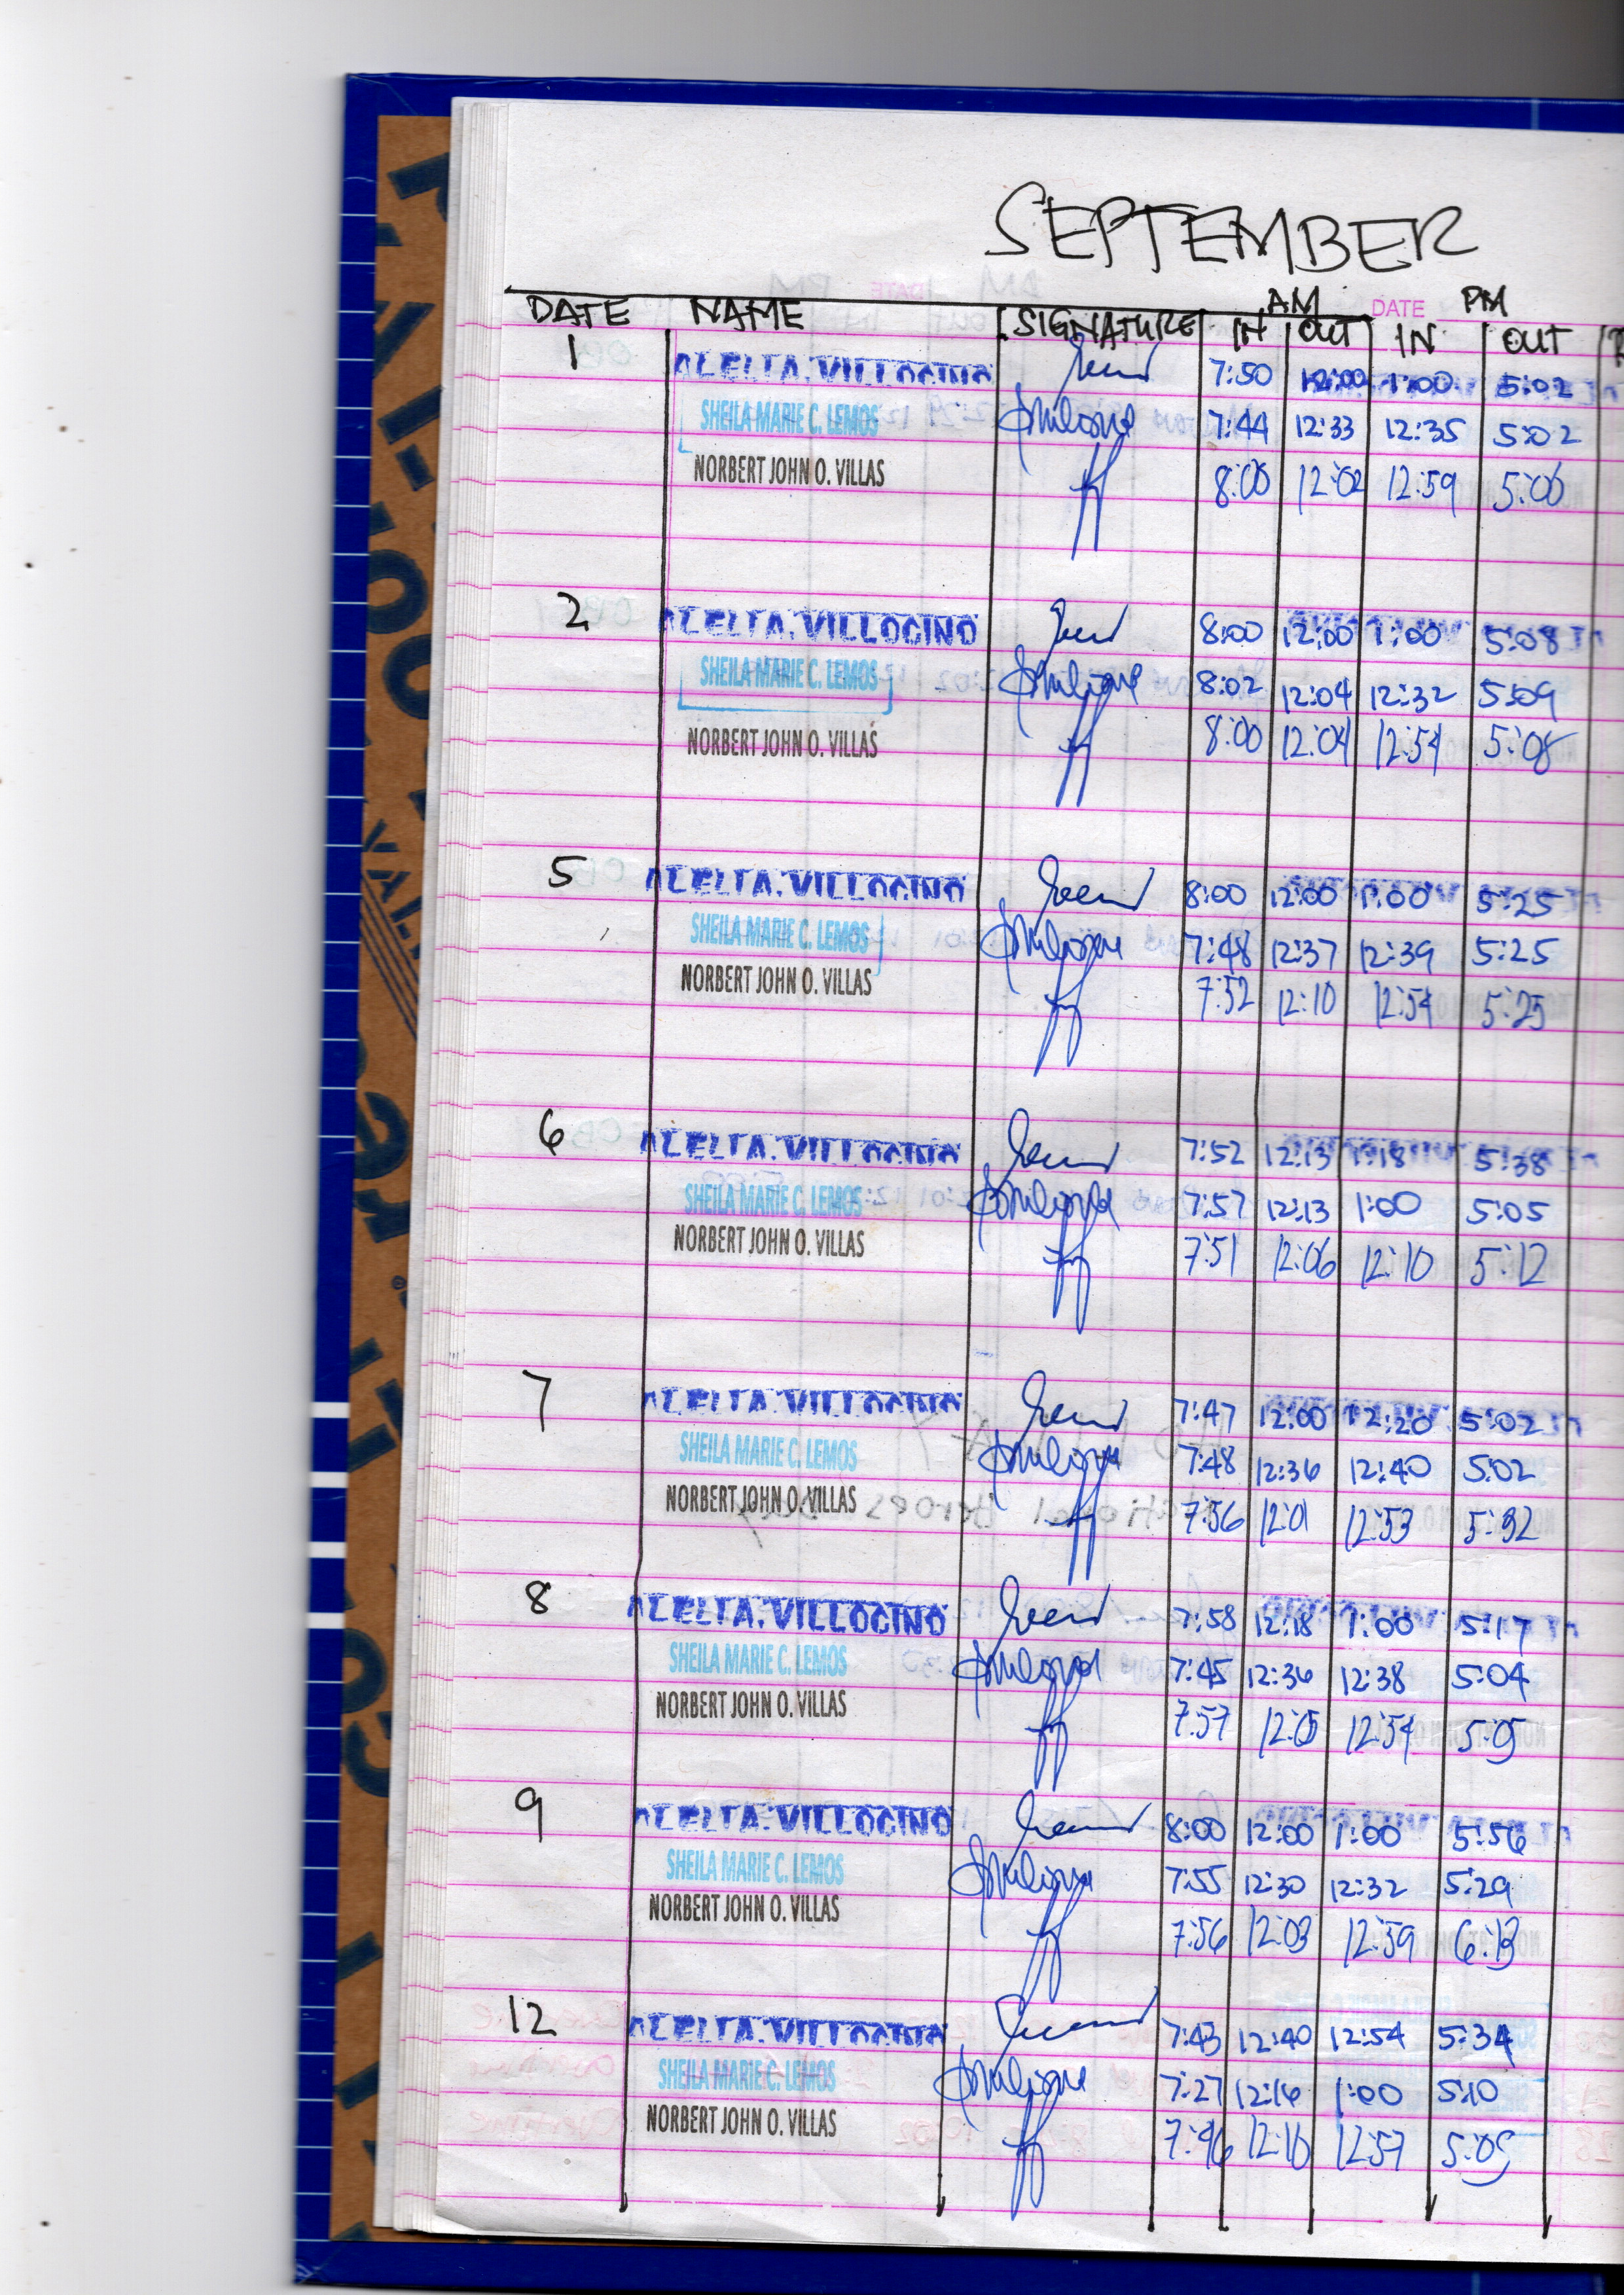 SEPTEMBER
AM DATE PM
DATE NAME SIGNATURE IN OUT IN OUT
1 VILLOCINO 7:50 12:00 1:00 5:02
SHEILA MARIE C. LEMOS 7:44 12:33 12:35 5:02
NORBERT JOHN O. VILLAS 8:00 12:02 12:59 5:00
2 VILLOCINO 8:00 12:00 1:00 5:08
SHEILA MARIE C. LEMOS 8:02 12:04 12:32 5:09
NORBERT JOHN O. VILLAS 8:00 12:04 12:54 5:08
5 VILLOCINO 8:00 12:00 1:00 5:25
SHEILA MARIE C. LEMOS 7:48 12:37 12:39 5:25
NORBERT JOHN O. VILLAS 7:52 12:10 12:54 5:25
6 VILLOCINO 7:52 12:13 1:18 5:38
SHEILA MARIE C. LEMOS 7:57 12:13 1:00 5:05
NORBERT JOHN O. VILLAS 7:51 12:06 12:10 5:12
7 VILLOCINO 7:47 12:00 12:20 5:02
SHEILA MARIE C. LEMOS 7:48 12:36 12:40 5:02
NORBERT JOHN O. VILLAS 7:56 12:01 12:53 5:32
8 VILLOCINO 7:58 12:18 1:00 5:17
SHEILA MARIE C. LEMOS 7:45 12:36 12:38 5:04
NORBERT JOHN O. VILLAS 7:57 12:05 12:54 5:05
9 VILLOCINO 8:00 12:00 1:00 5:56
SHEILA MARIE C. LEMOS 7:55 12:30 12:32 5:29
NORBERT JOHN O. VILLAS 7:56 12:03 12:59 6:13
12 VILLOCINO 7:43 12:40 12:54 5:34
SHEILA MARIE C. LEMOS 7:27 12:16 1:00 5:10
NORBERT JOHN O. VILLAS 7:46 12:10 12:57 5:05